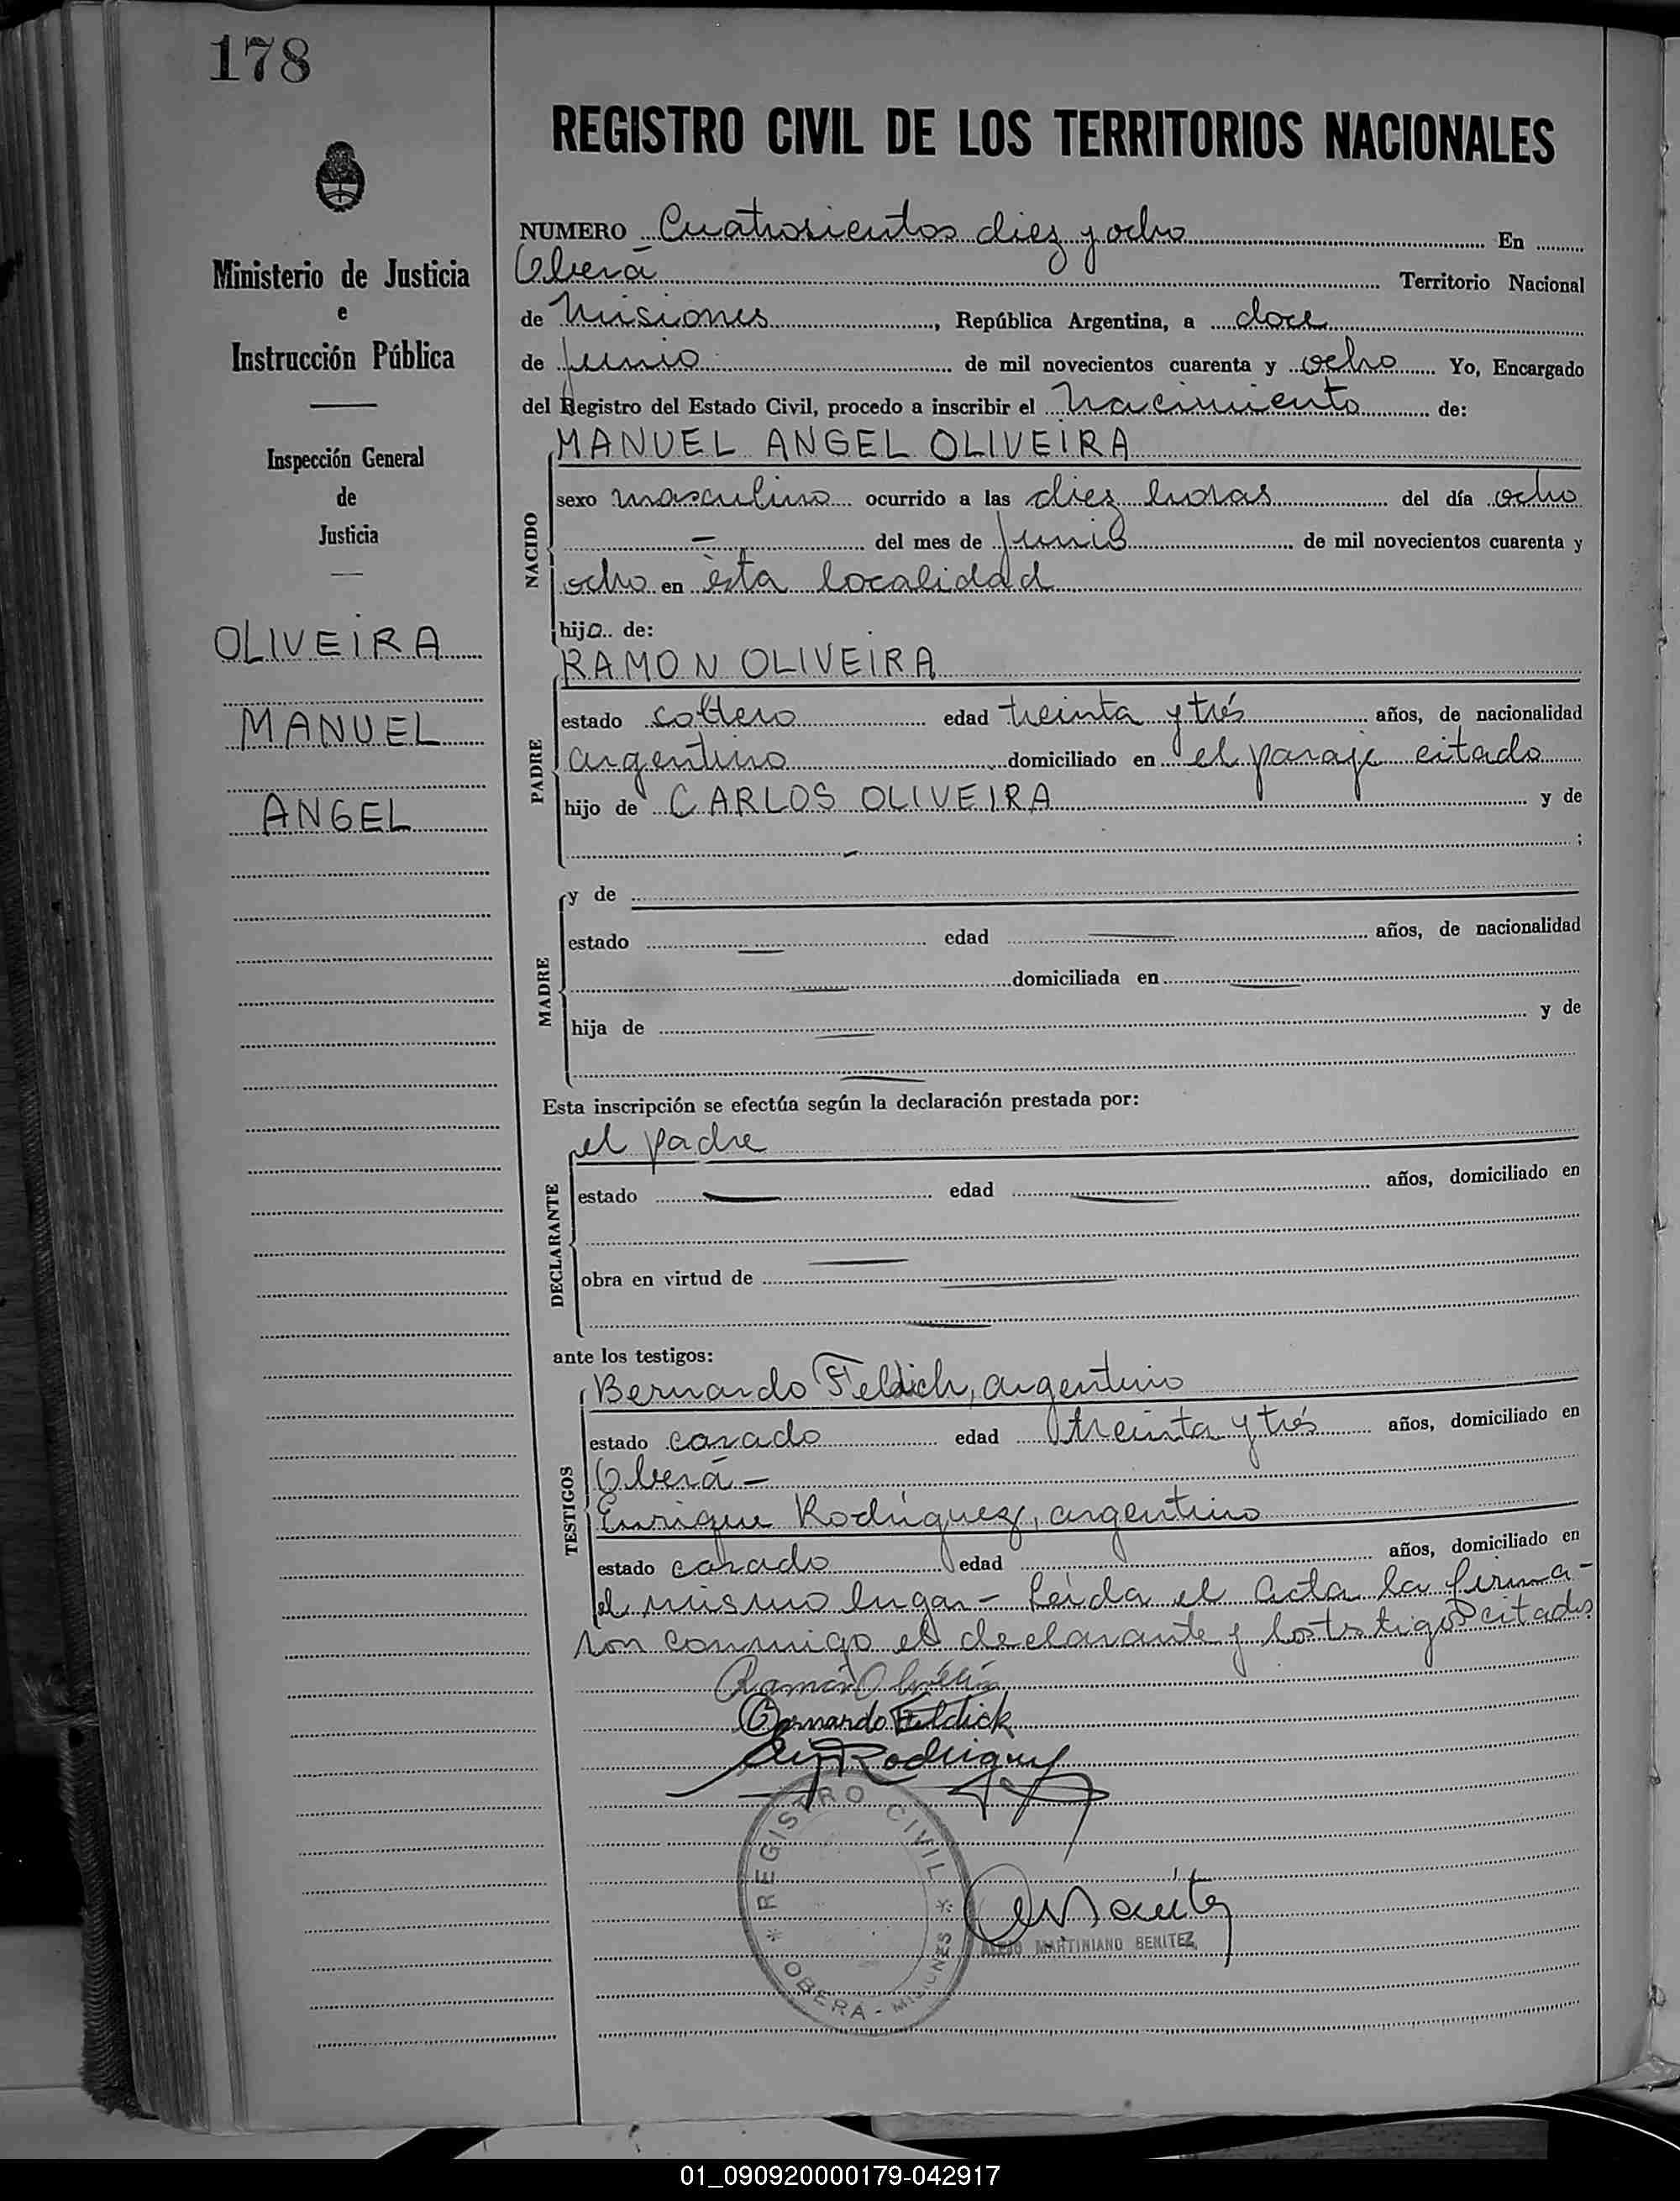 178
REGISTRO CIVIL DE LOS TERRITORIOS NACIONALES
Ministerio de Justicia
e
Instrucción Pública
Inspección General
de
Justicia
OLIVEIRA
MANUEL
ANGEL
NUMERO Cuatrosientos diez y ocho En
Oberá Territorio Nacional
de Misiones, República Argentina, a doce
de Junio de mil novecientos cuarenta y ocho Yo, Encargado
del Registro del Estado Civil, procedo a inscribir el nacimiento de:
NACIDO
MANUEL ANGEL OLIVEIRA
sexo masculino ocurrido a las diez horas del día ocho
— del mes de Junio de mil novecientos cuarenta y
ocho en ésta localidad
hijo de:
PADRE
RAMON OLIVEIRA
estado soltero edad treinta y trés años, de nacionalidad
argentino domiciliado en el paraje citado
hijo de CARLOS OLIVEIRA y de
- ;
MADRE
y de
estado — edad — años, de nacionalidad
— domiciliada en —
hija de — y de
—
Esta inscripción se efectúa según la declaración prestada por:
DECLARANTE
el padre
estado — edad — años, domiciliado en
—
obra en virtud de —
—
ante los testigos:
TESTIGOS
Bernardo Feldich, argentino
estado casado edad treinta y trés años, domiciliado en
Oberá -
Enrique Rodríguez, argentino
estado casado edad años, domiciliado en
el mismo lugar - Leída el Acta la firma-
ron conmigo el declarante y los testigos citados
Ramón Oliveira
Bernardo Feldick
Rodriguez
REGISTRO CIVIL
OBERA - MISIONES
ALEJO MARTINIANO BENITEZ
01_090920000179-042917